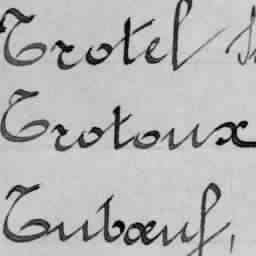 Trotel
Trotoux
Tubœuf,